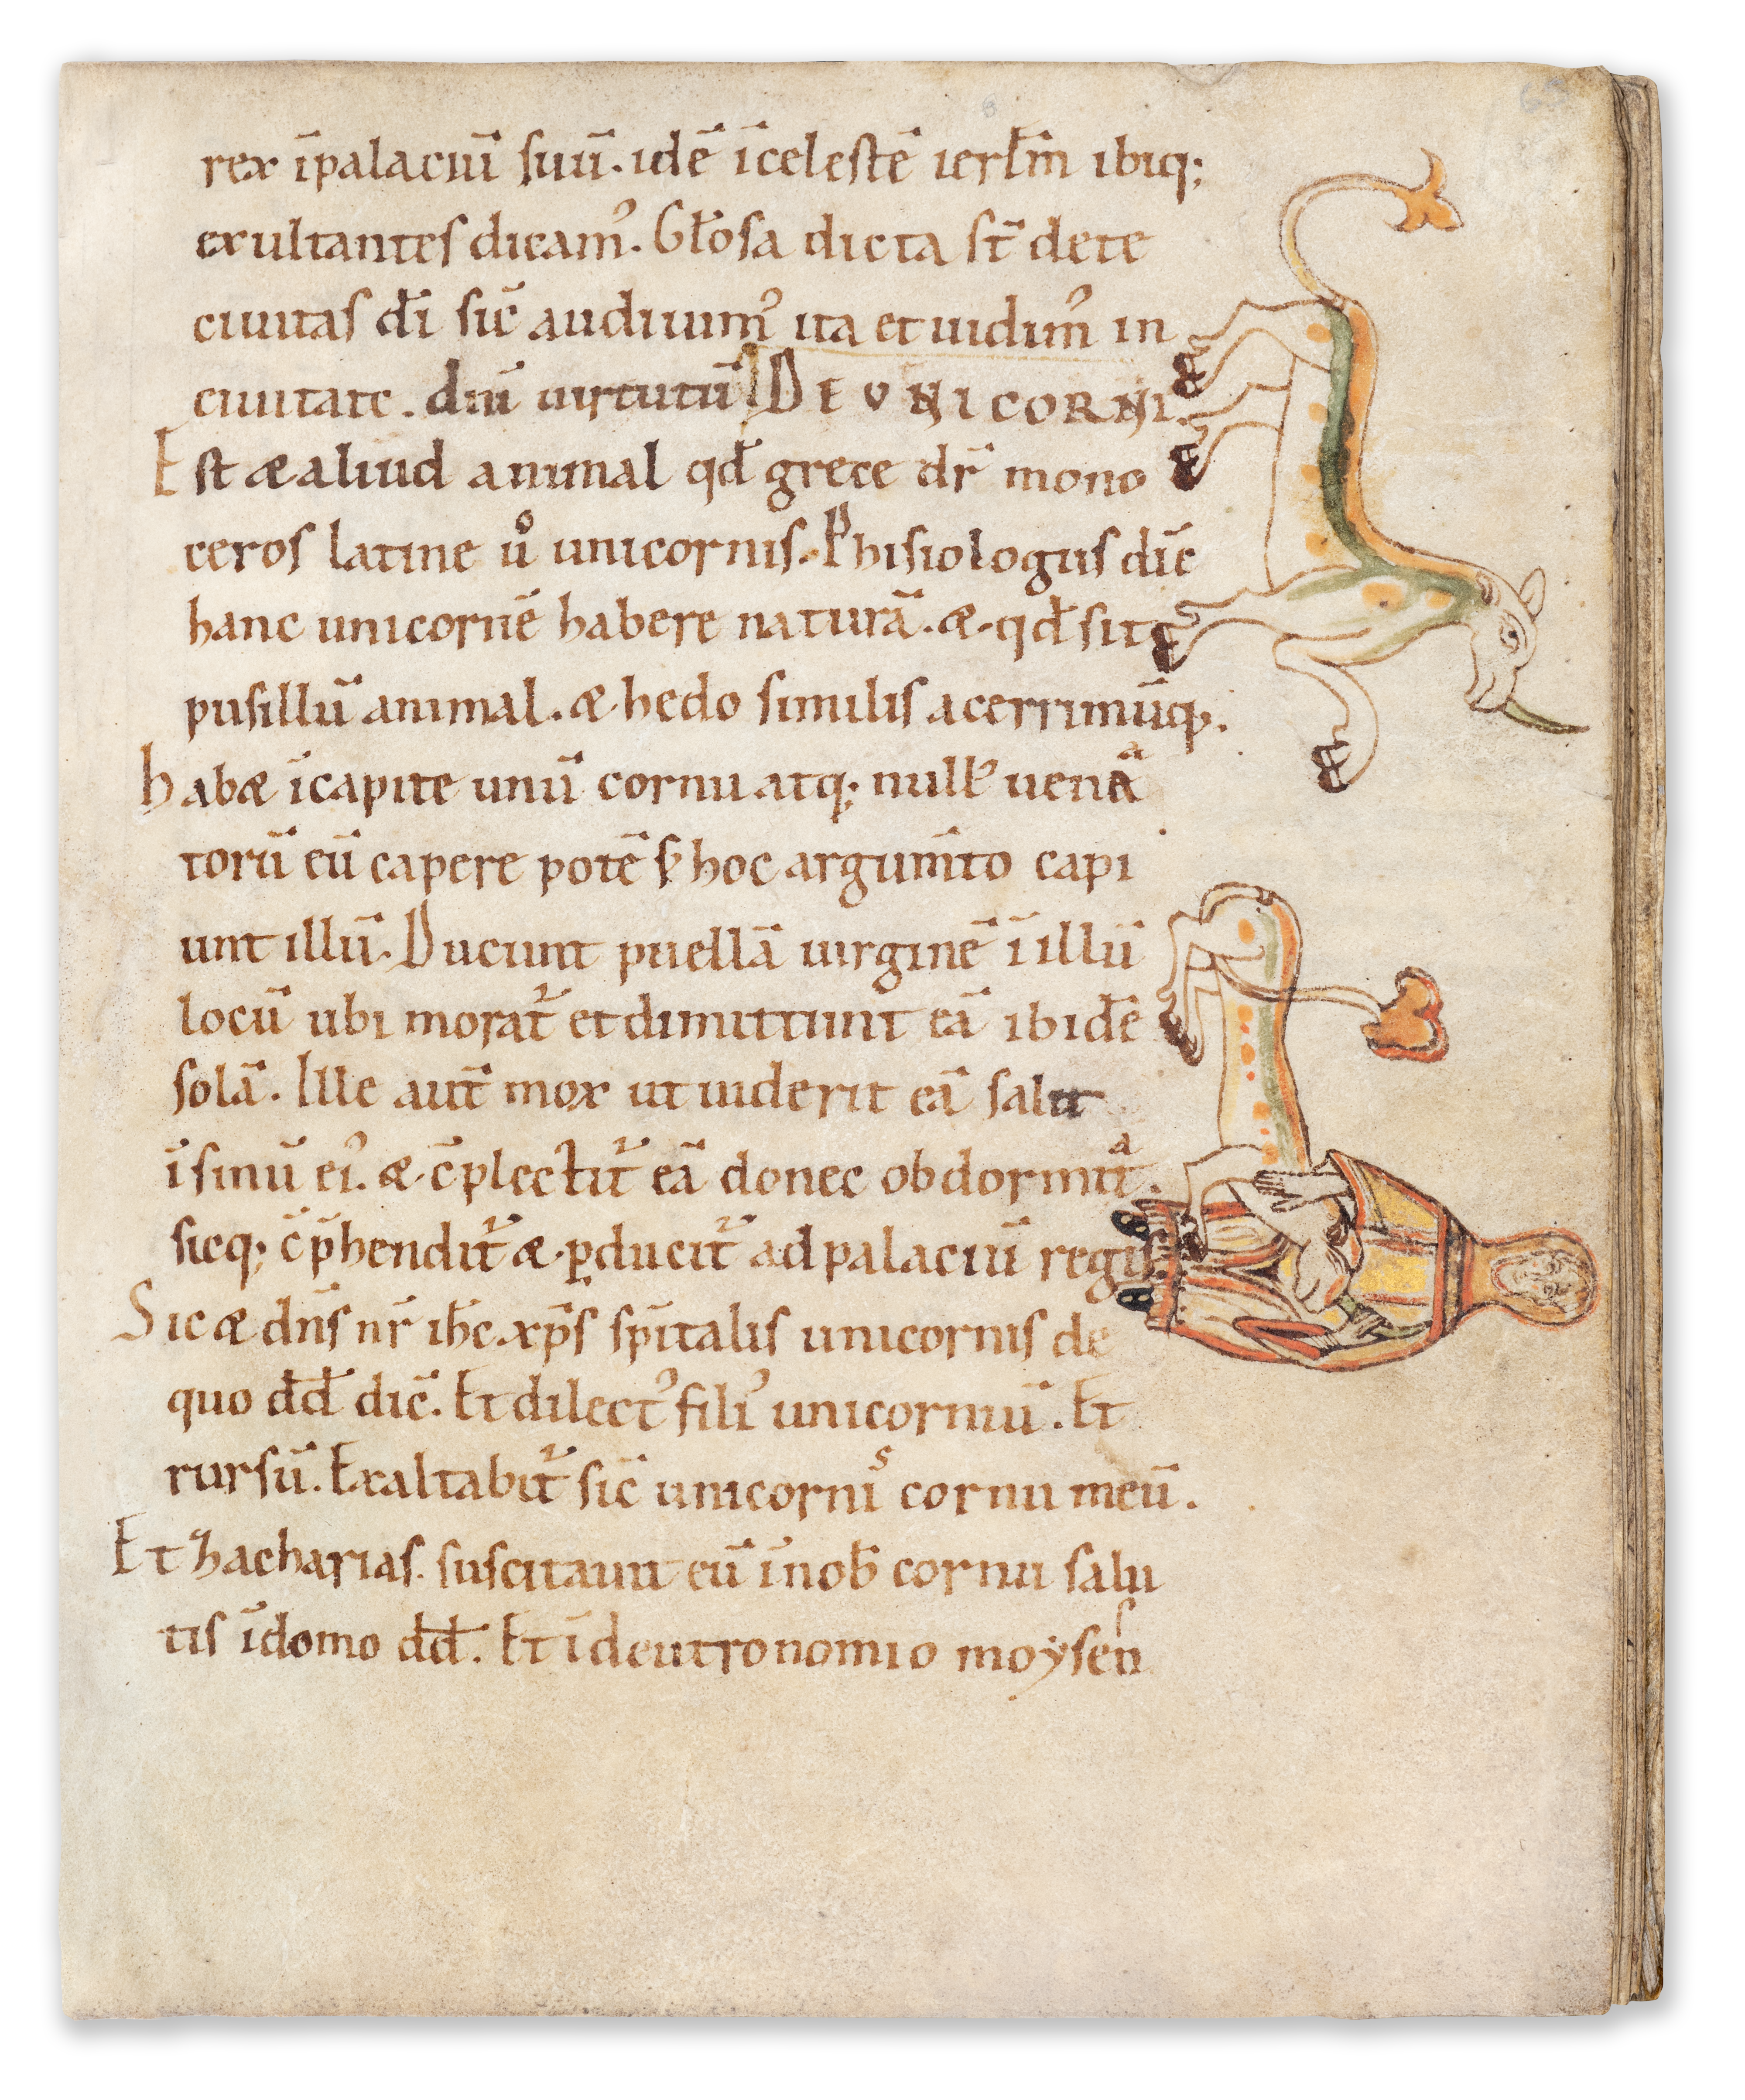 rex īpalaciū suū. idē īcelestē ierłm̄ ibiq;
exultantes dicam᾿. Głosa dicta st̄ dete
ciuitas dī sic̄ audiuim᾿ ita et uidim᾿ in
ciuitate. dn̄i uirtutū DE VNICORNI.
Est æ aliud animal qđ grece dr̄ mono
ceros latine ů unicornis. Phisiologus dic̄
hanc unicornē habere naturā. æ. qđ sit
pusillū animal. æ. hedo similis acerrimūq.
habæ īcapite unū cornu atq; null᾿ uenā
torū eū capere potē hoc argum̄to capi
unt illū. Ducunt puellā uirginē ī illū
locū ubi morat᷑ et dimittunt eā ibidē
solā. Ille aut̄ mox ut uiderit eā salit
ī sinū ei᾿. æ. c̄plectit᷑ eā donec obdormīt.
sicq; c̄p̄hendit᷑ æ. ꝑducit᷑ ad palaciū regis.
Sic æ dn̄s nr̄ ih̄c. xp̄s sp̄italis unicornis de
quo dđ dic̄. Et dilect᾿ fili᾿ unicorniū. Et
rursū. Exaltabit᷑ sic̄ unicornis cornu meū.
Et Zacharias. suscitauit eū īnoƀ cornu salu
tis īdomo dđ. Et ī deutronomio moysen